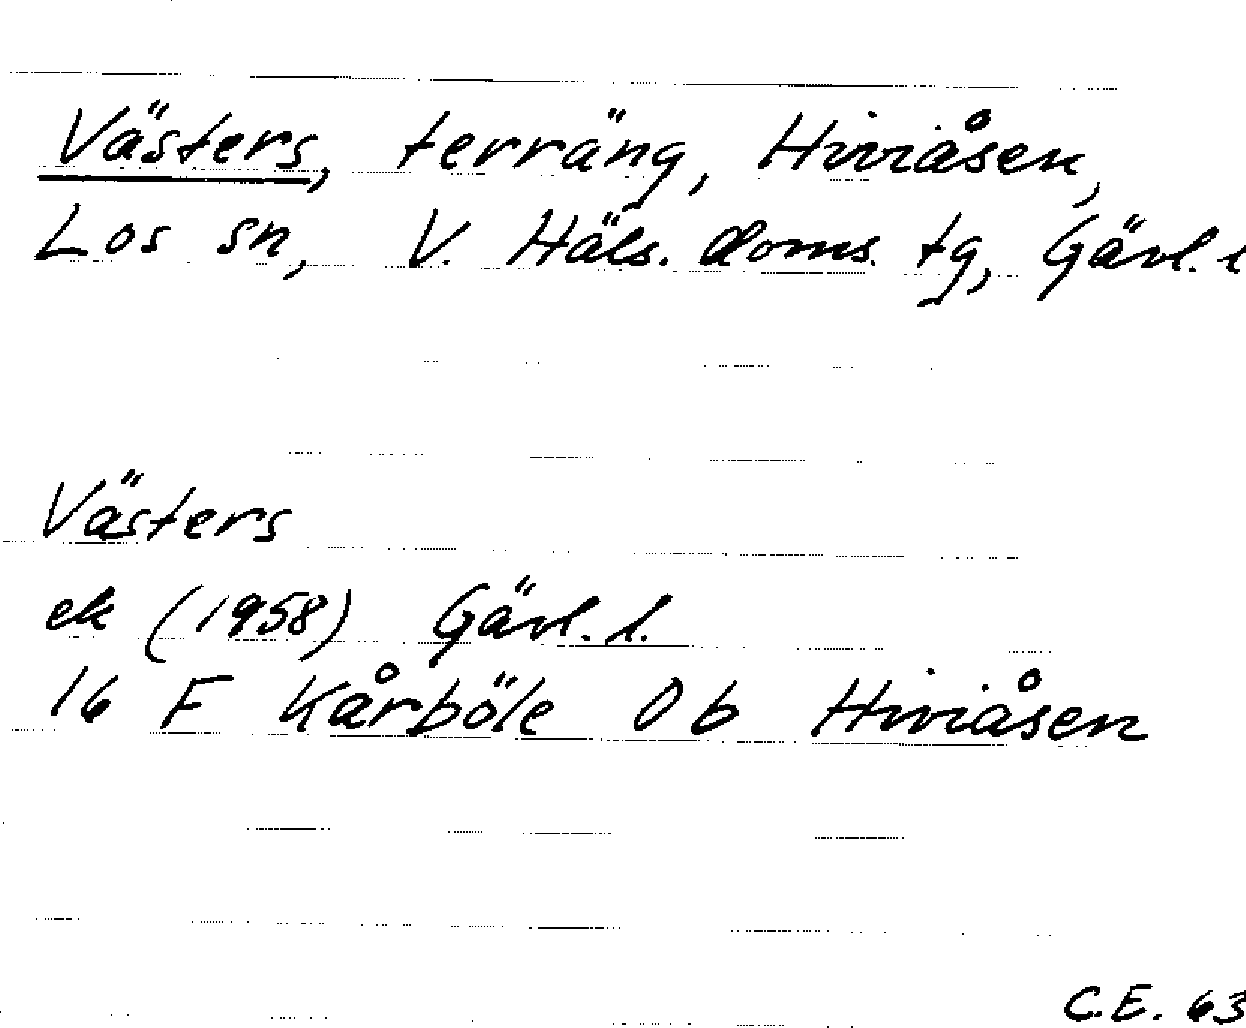 Västers, terräng, Hiviåsen,
Los sn, V. Häls. doms. tg, Gävl. l
Västers
ek (1958) Gävl. l.
16 F Kårböle 0 b Hiviåsen
C.E. 63